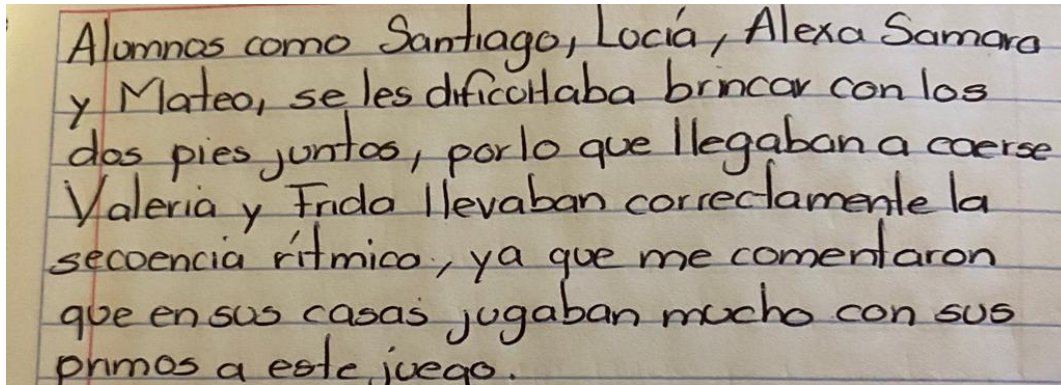 Alumnos como Santiago, Lucía, Alexa Samara
y Mateo, se les dificultaba brincar con los
dos pies juntos, por lo que llegaban a caerse
Valeria y Frida llevaban correctamente la
secuencia rítmica, ya que me comentaron
que en sus casas jugaban mucho con sus
primos a este juego.